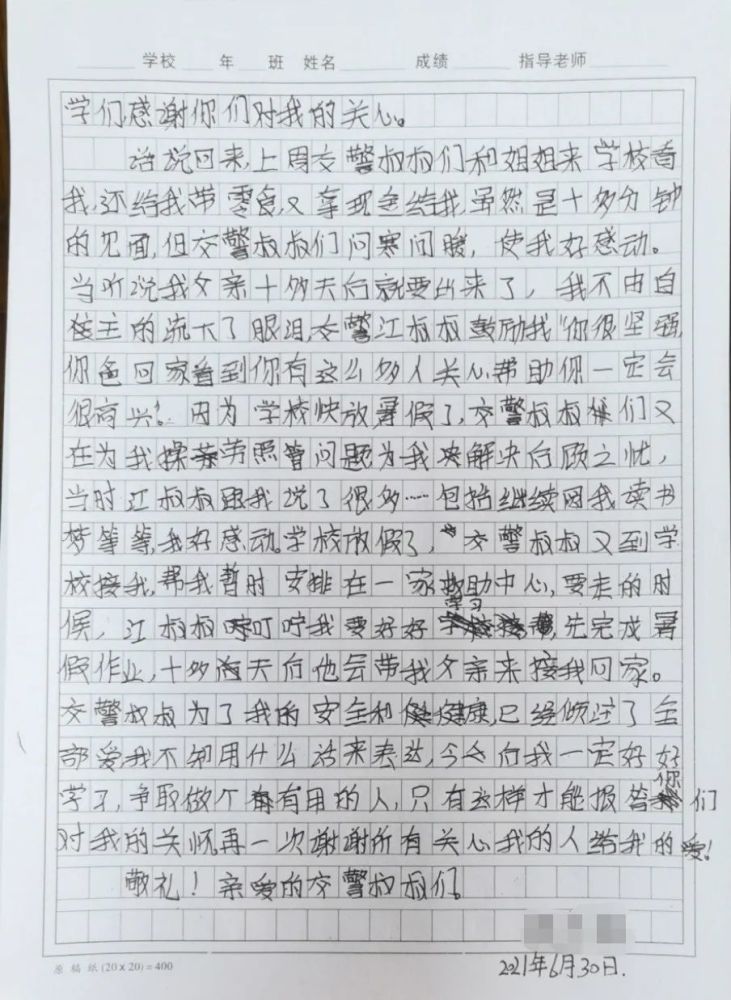 学校 年 班 姓名 成绩 指导老师
学们感谢你们对我的关心。
话说回来,上周交警叔叔们和姐姐来学校看
我,还给我带零食又拿现金给我,虽然是十多分钟
的见面,但交警叔叔们问寒问暖,使我好感动。
当听说我父亲十多天后就要出来了,我不由自
主的流下了眼泪,交警江叔叔鼓励我“你很坚强,
你爸回家看到你有这么多人关心帮助你一定会
很高兴!因为学校快放暑假了,交警叔叔们又
在为我操劳照管问题为我解决后顾之忧,
当时江叔叔跟我说了很多……包括继续网我读书
梦等等,我好感动。学校放假了,交警叔叔又到学
校接我,帮我暂时安排在一家救助中心,要走的时
候,江叔叔叮咛我要好好学习,先完成暑
假作业,十多天后他会带我父亲来接我回家。
交警叔叔为了我的安全和健康,已经倾过了全
部爱,我不知用什么话来表达,今后我一定好好
学习,争取做个有用的人,只有这样才能报答你们
对我的关怀,再一次谢谢所有关心我的人给我的爱!
敬礼!亲爱的交警叔叔们。
2021年6月30日.
原稿纸(20×20)=400